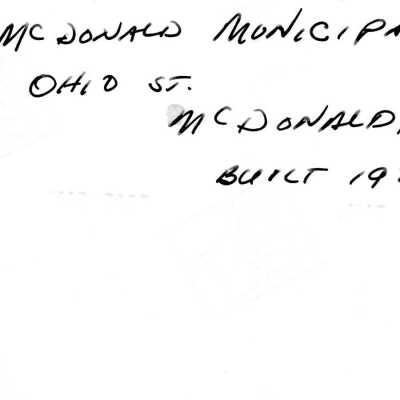 MCDONALD MUNICIPA
OHIO ST.
MCDONALD,
BUILT 19